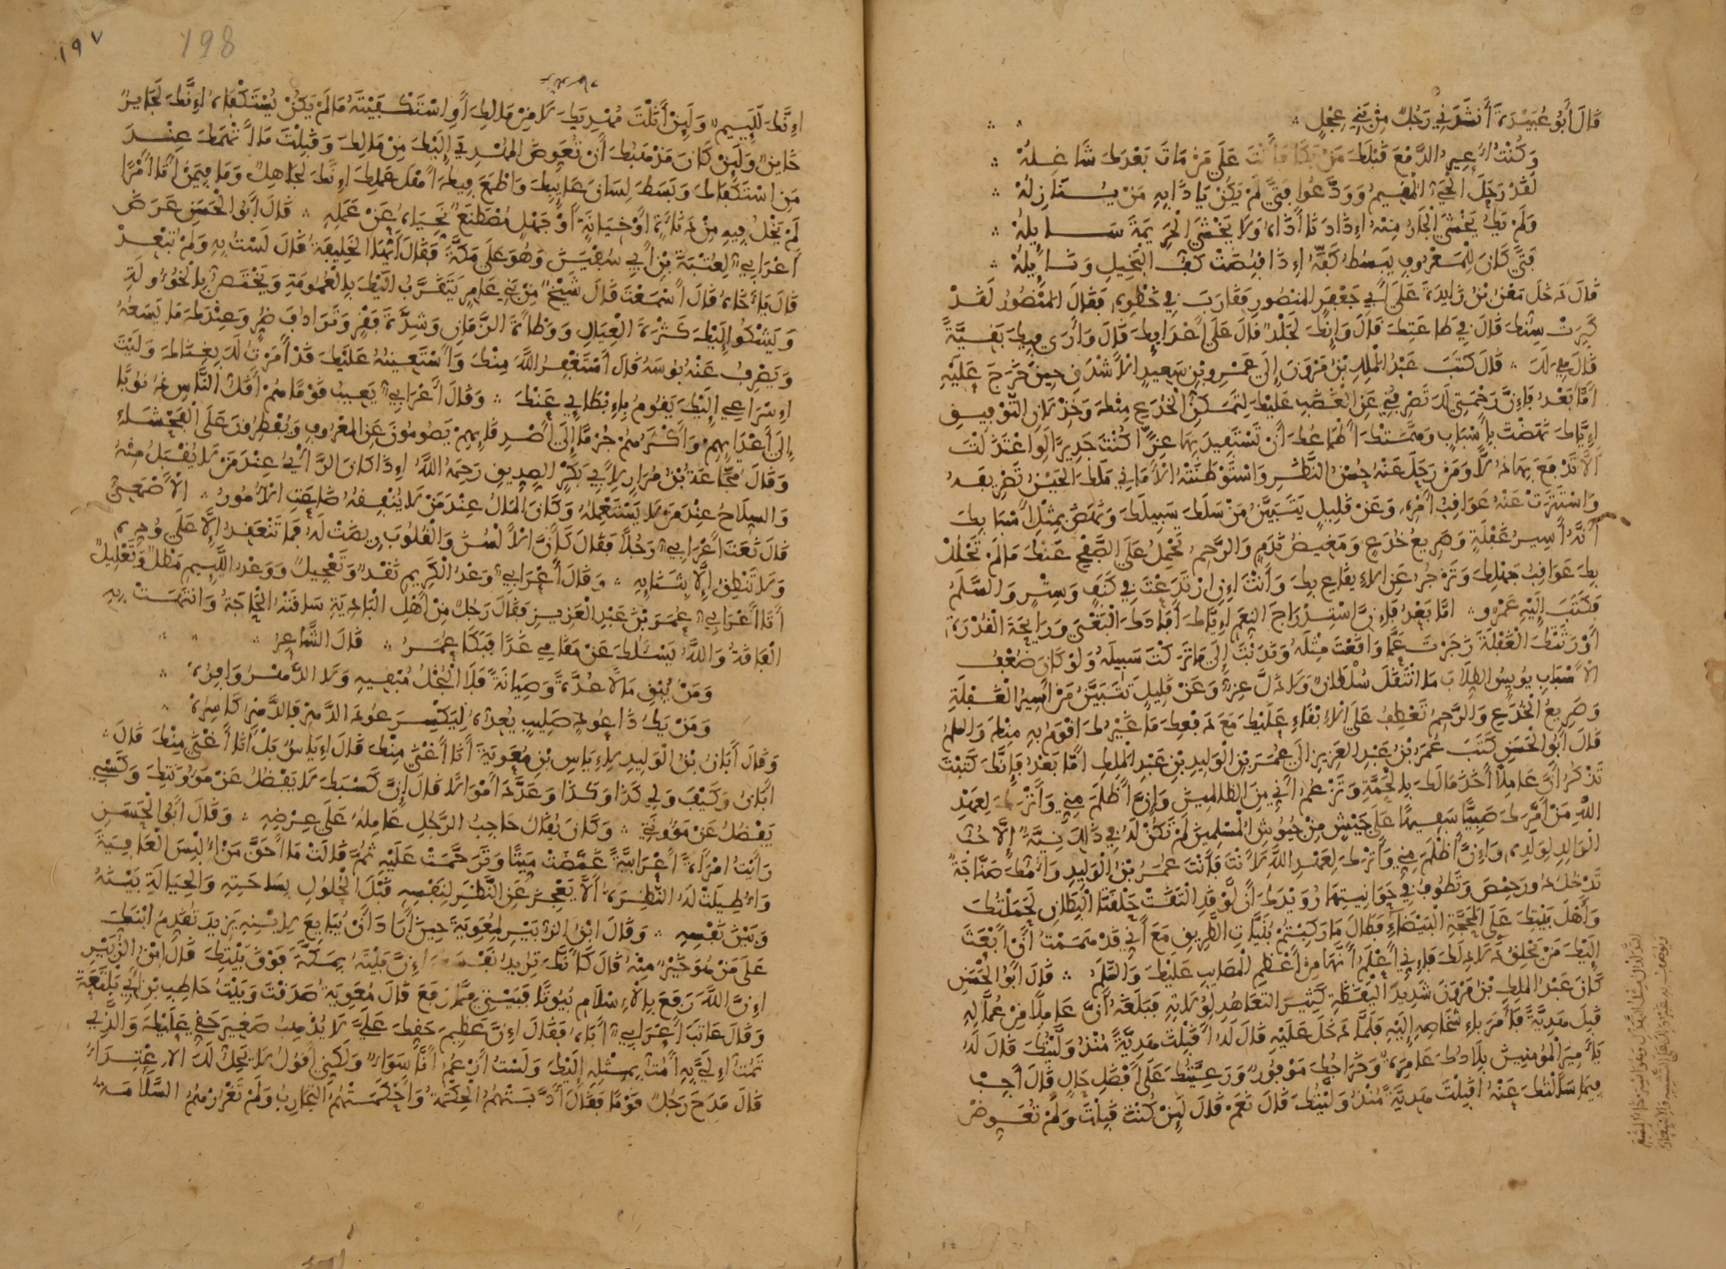 قَالَ أَبُو عُبَيْدَةَ أَنْشَدَنِي رَجُلٌ مِنْ بَنِي عِجْلٍ
وَكُنْتُ أُعِيرُ الدَّمْعَ قَبْلَكَ مَنْ بَكَا فَأَنْتَ عَلَى مَنْ مَاتَ بَعْدَكَ شَاغِلُهْ
لَقَدْ رَحَلَ الْحَيُّ الْمُقِيمُ وَوَدَّعُوا فَتًى لَمْ يَكُنْ يَأْذَى بِهِ مَنْ يُنَازِلُهْ
وَلَمْ يَكُ يَخْشَى الْجَارُ مِنْهُ إِذَا دَنَا أَذَاهُ وَلَا يَخْشَى الْحَرِيمَةَ سَايِلُهْ
فَتًى كَانَ لِلْمَعْرُوفِ يَبْسُطُ كَفَّهُ إِذَا قُبِضَتْ كَفُّ الْبَخِيلِ وَنَايِلُهْ
قَالَ دَخَلَ مَعْنُ بْنُ زَايِدَةَ عَلَى أَبِي جَعْفَرٍ الْمَنْصُورِ فَقَارَبَ فِي خَطْوِهِ فَقَالَ الْمَنْصُورُ لَقَدْ
كَبِرَتْ سِنُّكَ قَالَ فِي طَاعَتِكَ قَالَ وَإِنَّكَ لَجَلْدٌ قَالَ عَلَى أَعْدَايِكَ قَالَ وَأَرَى فِيكَ بَقِيَّةً
قَالَ هِيَ لَكَ قَالَ كَتَبَ عَبْدُ الْمَلِكِ بْنُ مَرْوَنَ إِلَى عَمْرِو بْنِ سَعِيدٍ الْأَشْدَقِ حِينَ خَرَجَ عَلَيْهِ
أَمَّا بَعْدُ فَإِنَّ رَحْمَتِي لَكَ تَصْرِفُنِي عَنِ الْغَضَبِ عَلَيْكَ لِتَمَكُّنِ الْخُدَعِ مِنْكَ وَخِذْلَانِ التَّوْفِيقِ
إِيَّاكَ نَهَضْتَ بِأَسْبَابٍ وَمَنَّتْكَ أَطْمَاعُكَ أَنْ تَسْتَفِيدَ بِهَا عِزًّا كُنْتَ جَدِيرًا لَوِ اعْتَدَلْتَ
أَلَّا تَدْفَعَ بِهَا ذُلًّا وَمَنْ رَحَلَ عَنْهُ حُسْنُ النَّظَرِ وَاسْتَوْطَنَتْهُ الْأَمَانِي مَلَكَ الْحَيْنُ تَصْرِيفَهُ
وَاسْتَتَرَتْ عَنْهُ عَوَاقِبُ أَمْرِهِ وَعَنْ قَلِيلٍ يَتَبَيَّنُ مَنْ سَلَكَ سَبِيلَكَ وَنَهَضَ بِمِثْلِ أَسْبَابِكَ
أَنَّهُ أَسِيرُ غَفْلَةٍ وَصَرِيعُ خُدَعٍ وَمَغِيضُ نَدَمٍ وَالرَّحِمُ تَحْمِلُ عَلَى الصَّفْحِ عَنْكَ مَا لَمْ تَحْلُلْ
بِكَ عَوَاقِبُ جَهْلِكَ وَتَزْجُرْ عَنِ الْإِيقَاعِ بِكَ وَأَنْتَ إِنِ ارْتَدَعْتَ فِي كَنَفٍ وَسِتْرٍ وَالسَّلَمُ
فَكَتَبَ إِلَيْهِ عَمْرٌو أَمَّا بَعْدُ فَإِنَّ اسْتِدْرَاجَ النِّعَمِ إِيَّاكَ أَفَادَكَ الْبَغْيَ وَرَايِحَةَ الْقُدْرَةِ
أَوْرَثَتْكَ الْغَفْلَةَ زَجَرْتَ عَمَّا وَاقَعْتَ مِثْلَهُ وَنَدَبْتَ إِلَى مَا تَرَكْتَ سَبِيلَهُ وَلَوْ كَانَ ضُعْفُ
الْأَسْبَابِ يُويِسُ الطُّلَّابَ مَا انْتَقَلَ سُلْطَانٌ وَلَا ذَلَّ عِزٌّ وَعَنْ قَلِيلٍ تَتَبَيَّنُ مَنْ أَسِيرُ الْغَفْلَةِ
وَصَرِيعُ الْخُدَعِ وَالرَّحِمُ تَعْطِفُ عَلَى الْإِبْقَاءِ عَلَيْكَ مَعَ دَفْعِكَ مَا غَيْرُكَ أَقْوَمُ بِهِ مِنْكَ وَالسَّلَمُ
قَالَ أَبُو الْحَسَنِ كَتَبَ عُمَرُ بْنُ عَبْدِ الْعَزِيزِ إِلَى عُمَرَ بْنِ الْوَلِيدِ بْنِ عَبْدِ الْمَلِكِ أَمَّا بَعْدُ فَإِنَّكَ كَتَبْتَ
تَذْكُرُ أَنَّ عَامِلًا أَخَذَ مَالَكَ بِالْحَمَّةِ وَتَزْعُمُ أَنِّي مِنَ الظَّالِمِينَ وَإِنَّ أَظْلَمَ مِنِّي وَأَتْرَكَ لِعَهْدِ
اللَّهِ مَنْ أَمَّرَكَ صَبِيًّا سَفِيهًا عَلَى جَيْشٍ مِنْ جُيُوشِ الْمُسْلِمِينَ لَمْ تَكُنْ لَهُ فِي ذَلِكَ نِيَّةٌ إِلَّا حُبَّ
الْوَالِدِ لِوَلَدِهِ وَإِنَّ أَظْلَمَ مِنِّي وَأَتْرَكَ لِعَهْدِ اللَّهِ لَأَنْتَ فَأَنْتَ عُمَرُ بْنُ الْوَلِيدِ وَأُمُّكَ صَنَّاجَةٌ
تَدْخُلُ دُورَ حِمْصَ وَتَطُوفُ فِي حَوَانِيتِهَا رُوَيْدَكَ أَنْ لَوْ قَدِ الْتَقَتْ حَلْقَتَا الْبِطَانِ لَحَمَلْتُكَ
وَأَهْلَ بَيْتِكَ عَلَى الْمَحَجَّةِ الْبَيْضَاءِ فَطَالَ مَا رَكِبْتُمْ بُنَيَّاتِ الطَّرِيقِ مَعَ أَنِّي قَدْ هَمَمْتُ أَنْ أَبْعَثَ
إِلَيْكَ مَنْ يَحْلِقُ دَلَادِلَكَ فَإِنِّي أَعْلَمُ أَنَّهَا مِنْ أَعْظَمِ الْمَصَايِبِ عَلَيْكَ وَالسَّلَمُ قَالَ أَبُو الْحَسَنِ
كَانَ عَبْدُ الْمَلِكِ بْنُ مَرْوَنَ شَدِيدَ الْيَقَظَةِ كَثِيرَ التَّعَاهُدِ لِوُلَاتِهِ فَبَلَغَهُ أَنَّ عَامِلًا مِنْ عُمَّالِهِ
قَبِلَ هَدِيَّةً فَأَمَرَ بِإِشْخَاصِهِ إِلَيْهِ فَلَمَّا دَخَلَ عَلَيْهِ قَالَ لَهُ أَقَبِلْتَ هَدِيَّةً مُنْذُ وَلَّيْتُكَ قَالَ لَهُ
يَا أَمِيرَ الْمُومِنِينَ بِلَادُكَ عَامِرَةٌ وَخَرَاجُكَ مَوْفُورٌ وَرَعِيَّتُكَ عَلَى أَفْضَلِ حَالٍ قَالَ أَجِبْ
فِيمَا سَأَلْتُكَ عَنْهُ أَقَبِلْتَ هَدِيَّةً مُنْذُ وَلَّيْتُكَ قَالَ نَعَمْ قَالَ لَيِنْ كُنْتَ قَبِلْتَ وَلَمْ تُعَوِّضْ
198
١٩٧
إِنَّكَ لَلَيِيمٌ وَلَيِنْ أَنَلْتَ مُهْدِيَكَ لَا مِنْ مَالِكَ أَوِ اسْتَكْفَيْتَهُ مَا لَمْ يَكُنْ يُسْتَكْفَاهُ إِنَّكَ لَجَايِرٌ
خَايِنٌ وَلَيِنْ كَانَ مَذْهَبُكَ أَنْ تُعَوِّضَ الْمُهْدِيَ إِلَيْكَ مِنْ مَالِكَ وَقَبِلْتَ مَا اتَّهَمَكَ عِنْدَ
مَنِ اسْتَكْفَاكَ وَبَسَطَ لِسَانَ عَايِبِكَ وَأَطْمَعَ فِيكَ أَهْلَ عَمَلِكَ إِنَّكَ لَجَاهِلٌ وَمَا فِيمَنْ أَتَى أَمْرًا
لَمْ يَخْلُ فِيهِ مِنْ دَنَاءَةٍ أَوْ خِيَانَةٍ أَوْ جَهْلٍ مُصْطَنَعٌ نَحَّيَاهُ عَنْ عَمَلِهِ قَالَ أَبُو الْحَسَنِ عَرَضَ
أَعْرَابِيٌّ لِعُتْبَةَ بْنِ أَبِي سُفْيَنَ وَهُوَ عَلَى مَكَّةَ فَقَالَ أَيُّهَا الْخَلِيفَةُ قَالَ لَسْتُ بِهِ وَلَمْ تُبْعِدْ
قَالَ يَا أَخَاهُ قَالَ أَسْمَعْتَ قَالَ شَيْخٌ مِنْ بَنِي عَامِرٍ يَتَقَرَّبُ إِلَيْكَ بِالْعُمُومَةِ وَيَخْتَصُّ بِالْخُؤُولَةِ
وَيَشْكُو إِلَيْكَ كَثْرَةَ الْعِيَالِ وَوَطْأَةَ الزَّمَانِ وَشِدَّةَ فَقْرٍ وَتَرَادُفَ ضُرٍّ وَعِنْدَكَ مَا يَسَعُهُ
وَيَصْرِفُ عَنْهُ بُوسَهُ قَالَ أَسْتَغْفِرُ اللَّهَ مِنْكَ وَأَسْتَعِينُهُ عَلَيْكَ قَدْ أَمَرْتُ لَكَ بِغِنَاكَ وَلَيْتَ
إِسْرَاعِي إِلَيْكَ يَقُومُ بِإِبْطَايِي عَنْكَ وَقَالَ أَعْرَابِيٌّ يَعِيبُ قَوْمًا هُمْ أَقَلُّ النَّاسِ ذُنُوبًا
إِلَى أَعْدَايِهِمْ وَأَكْثَرُهُمْ جُرْمًا إِلَى أَصْدِقَايِهِمْ يَصُومُونَ عَنِ الْمَعْرُوفِ وَيُفْطِرُونَ عَلَى الْفَحْشَاءِ
وَقَالَ مُجَّاعَةُ بْنُ مُرَارٍ لِأَبِي بَكْرٍ الصِّدِّيقِ رَحِمَهُ اللَّهُ إِذَا كَانَ الرَّأْيُ عِنْدَ مَنْ لَا يُقْبَلُ مِنْهُ
وَالسِّلَاحُ عِنْدَ مَنْ لَا يَسْتَعْمِلُهُ وَكَانَ الْمَالُ عِنْدَ مَنْ لَا يُنْفِقُهُ ضَاعَتِ الْأُمُورُ الْأَصْمَعِيُّ
قَالَ نَعَتَ أَعْرَابِيٌّ رَجُلًا فَقَالَ كَأَنَّ الْأَلْسُنَ وَالْقُلُوبَ رِيضَتْ لَهُ فَمَا تَنْعَقِدُ إِلَّا عَلَى وُدِّهِ
وَلَا تَنْطِقُ إِلَّا بِثَنَايِهِ وَقَالَ أَعْرَابِيٌّ وَعْدُ الْكَرِيمِ نَقْدٌ وَتَعْجِيلٌ وَوَعْدُ اللَّيِيمِ مَطْلٌ وَتَعْلِيلٌ
أَتَى أَعْرَابِيٌّ عُمَرَ بْنَ عَبْدِ الْعَزِيزِ فَقَالَ رَجُلٌ مِنْ أَهْلِ الْبَادِيَةِ سَاقَتْهُ الْحَاجَةُ وَانْتَهَتْ بِهِ
الْفَاقَةُ وَاللَّهُ يَسْأَلُكَ عَنْ مَقَامِي غَدًا فَبَكَا عُمَرُ قَالَ الشَّاعِرُ
وَمَنْ يُبْقِ مَالًا عُدَّةً وَصِيَانَةً فَلَا الْبُخْلُ مُبْقِيهِ وَلَا الدَّهْرُ وَافِرُهْ
وَمَنْ يَكُ ذَا عُودٍ صَلِيبٍ يُعِدُّهُ لِيَكْسِرَ عُودَ الدَّهْرِ فَالدَّهْرُ كَاسِرُهْ
وَقَالَ أَبَانُ بْنُ الْوَلِيدِ لِإِيَاسِ بْنِ مُعَوِيَةَ أَنَا أَغْنَى مِنْكَ قَالَ إِيَاسٌ بَلْ أَنَا أَغْنَى مِنْكَ قَالَ
أَبَانُ وَكَيْفَ وَلِي كَذَا وَكَذَا وَعَدَّدَ أَمْوَالًا قَالَ إِنَّ كَسْبَكَ لَا يَفْضُلُ عَنْ مَوُونَتِكَ وَكَسْبِي
يَفْضُلُ عَنْ مَوُونَتِي وَكَانَ يُقَالُ حَاجِبُ الرَّجُلِ عَامِلُهُ عَلَى عِرْضِهِ وَقَالَ أَبُو الْحَسَنِ
رَأَيْتُ امْرَأَةً أَعْرَابِيَّةً غَمَّضَتْ مَيِّتًا وَتَرَحَّمَتْ عَلَيْهِ ثُمَّ قَالَتْ مَا أَحَقَّ مَنْ أُلْبِسَ الْعَافِيَةَ
وَأُطِيلَتْ لَهُ النَّظِرَةُ أَلَّا يَعْجِزَ عَنِ النَّظَرِ لِنَفْسِهِ قَبْلَ الْحُلُولِ بِسَاحَتِهِ وَالْحِيَالَةِ بَيْنَهُ
وَبَيْنَ نَفْسِهِ وَقَالَ ابْنُ الزُّبَيْرِ لِمُعَوِيَةَ حِينَ أَرَادَ أَنْ يُبَايِعَ لِابْنِهِ يَزِيدَ تُقَدِّمُ ابْنَكَ
عَلَى مَنْ هُوَ خَيْرٌ مِنْهُ قَالَ كَأَنَّكَ تُرِيدُ نَفْسَكَ إِنَّ بَيْتَهُ بِمَكَّةَ فَوْقَ بَيْتِكَ قَالَ ابْنُ الزُّبَيْرِ
إِنَّ اللَّهَ رَفَعَ بِالْإِسْلَامِ بُيُوتًا فَبَيْتِي مِمَّا رَفَعَ قَالَ مُعَوِيَةُ صَدَقْتَ وَبَيْتُ حَاطِبِ بْنِ أَبِي بَلْتَعَةَ
وَقَالَ عَاتَبَ أَعْرَابِيٌّ أَبَاهُ فَقَالَ إِنَّ عَظِيمَ حَقِّكَ عَلَيَّ لَا يُذْهِبُ صَغِيرَ حَقِّي عَلَيْكَ وَالَّذِي
تَمُتُّ إِلَيَّ بِهِ أَمُتُّ بِمِثْلِهِ إِلَيْكَ وَلَسْتُ أَزْعُمُ أَنَّا سَوَاءٌ وَلَكِنِّي أَقُولُ لَا يَحِلُّ لَكَ الِاعْتِدَاءُ
قَالَ مَدَحَ رَجُلٌ قَوْمًا فَقَالَ أَدَّبَتْهُمُ الْحِكْمَةُ وَأَحْكَمَتْهُمُ التَّجَارِبُ وَلَمْ تَغْرُرْهُمُ السَّلَامَةُ